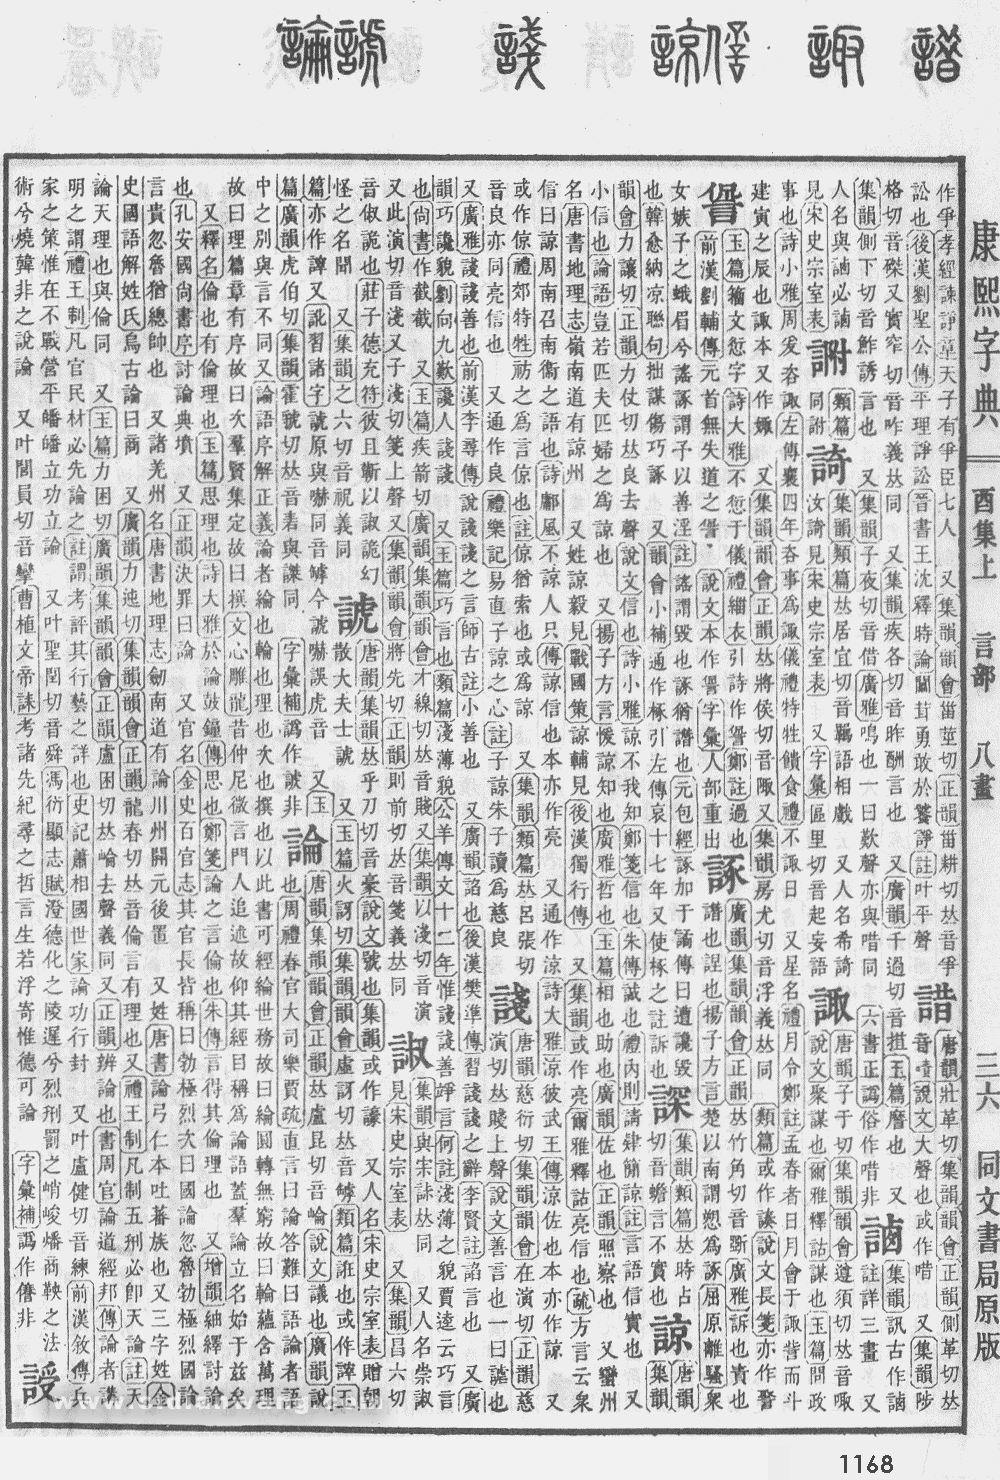 諎 諏 信 諒 諓 諕 論
康熙字典 酉集上 言部 八畫 三六 同文書局原版
作爭孝經諫諍章天子有爭臣七人 又集韻韻會甾莖切正韻甾耕切𠀤音爭
訟也後漢劉聖公傳平理諍訟晉書王沈釋時論闒茸勇敢於饕諍註叶平聲
諎
唐韻壯革切集韻韻會正韻側革切𠀤
音嘖說文大聲也或作唶 又集韻陟
格切音磔又實窄切音咋義𠀤同 又集韻疾各切音昨酬言也 又廣韻千過切音挫玉篇磿也 又
集韻側下切音鮓誘言也 又集韻子夜切音借廣雅鳴也一曰歎聲亦與唶同 六書正譌俗作唶非
集韻訊古作
註詳三畫 又
人名與必
見宋史宗室表
類篇
同
集韻類篇𠀤居宜切音羈語相戲 又人名希
汝見宋史宗室表 又字彙區里切音起妄語
諏
唐韻子于切集韻韻會遵須切𠀤音陬
說文聚謀也爾雅釋詁謀也玉篇問政
事也詩小雅周爰咨諏左傳襄四年咨事爲諏儀禮特牲饋食禮不諏日 又星名禮月令鄭註孟春者日月會于諏訾而斗
建寅之辰也諏本又作娵 又集韻韻會正韻𠀤將侯切音陬又集韻房尤切音浮義𠀤同 類篇或作說文長箋亦作
諐
玉篇籀文愆字詩大雅不愆于儀禮緇衣引詩作諐鄭註過也
前漢劉輔傳元首無失道之諐 說文本作 字彙人部重出
諑
廣韻集韻韻會正韻𠀤竹角切音斲廣雅訴也責也
譖也諻也揚子方言楚以南謂愬爲諑屈原離騷衆
女嫉予之蛾眉兮謠諑謂予以善淫註謠謂毀也諑猶譖也元包經諑加于傳曰遭讒毀
也韓愈納凉聯句拙謀傷巧諑 又韻會小補通作椓引左傳哀十七年又使椓之註訴也
集韻類篇𠀤時占
切音蟾言不實也
諒
唐韻
集韻
韻會力讓切正韻力仗切𠀤良去聲說文信也詩小雅諒不我知鄭箋信也朱傳誠也禮內則請肄簡諒註言語信實也 又
小信也論語豈若匹夫匹婦之爲諒也 又揚子方言愋諒知也廣雅哲也玉篇相也助也廣韻佐也正韻照察也 又蠻州
名唐書地理志嶺南道有諒州 又姓諒毅見戰國策諒輔見後漢獨行傳 又集韻或作亮爾雅釋詁亮信也疏方言云衆
信曰諒周南召南衞之語也詩鄘風不諒人只傳諒信也本亦作亮 又通作涼詩大雅涼彼武王傳涼佐也本亦作諒 又
或作倞禮郊特牲祊之爲言倞也註倞猶索也或爲諒 又集韻類篇𠀤呂張切
音良亦同亮信也 又通作良禮樂記易直子諒之心註子諒朱子讀爲慈良
諓
唐韻慈衍切集韻韻會在演切正韻慈
演切𠀤賤上聲說文善言也一曰謔也
又廣雅諓諓善也前漢李尋傳說諓諓之言師古註小善也 又廣韻諂也後漢樊準傳習諓諓之辭李賢註諂言也 又廣
韻巧讒貌劉向九歎讒人諓諓 又玉篇巧言也類篇淺薄貌公羊傳文十二年惟諓諓善竫言何註淺薄之貌賈逵云巧言
也尚書作截截 又玉篇疾箭切廣韻集韻韻會才線切𠀤音賤又集韻以淺切音演
又此演切音淺又子淺切箋上聲又集韻韻會將先切正韻則前切𠀤音箋義𠀤同
諔
集韻與宋𠀤同 又人名崇諔
見宋史宗室表 又集韻昌六切
音俶詭也莊子德充符彼且蘄以諔詭幻
怪之名聞 又集韻之六切音祝義同
諕
唐韻集韻𠀤乎刀切音豪說文號也集韻或作譹 又人名宋史宗室表贈朝
散大夫士諕 又玉篇火訝切集韻韻會虛訝切𠀤音罅類篇誑也或作謼玉
篇亦作謼又訛習諸字諕原與嚇同音罅今諕嚇誤虎音 又玉
篇廣韻虎伯切集韻霍虢切𠀤音砉與謋同 字彙補譌作非
論
唐韻集韻韻會正韻𠀤盧昆切音崘說文議也廣韻說
也周禮春官大司樂賈疏直言曰論答難曰語論者語
中之別與言不同又論語序解正義論者綸也輪也理也次也撰也以此書可經綸世務故曰綸圓轉無窮故曰輪蘊含萬理
故曰理篇章有序故曰次羣賢集定故曰撰文心雕龍昔仲尼微言門人追述故仰其經目稱爲論語蓋羣論立名始于兹矣
又釋名倫也有倫理也玉篇思理也詩大雅於論鼓鐘傳思也鄭箋論之言倫也朱傳言得其倫理也 又增韻紬繹討論
也孔安國尚書序討論典墳 又正韻決罪曰論 又官名金史百官志其官長皆稱曰勃極烈次曰國論忽魯勃極烈國論
言貴忽魯猶總帥也 又諸羌州名唐書地理志劒南道有論川州開元後置 又姓唐書論弓仁本吐蕃族也又三字姓金
史國語解姓氏烏古論曰商 又廣韻力迍切集韻韻會正韻龍春切𠀤音倫言有理也又禮王制凡制五刑必卽天論註天
論天理也與倫同 又玉篇力困切廣韻集韻韻會正韻盧困切𠀤崘去聲義同又正韻辨論也書周官論道經邦傳論者講
明之謂禮王制凡官民材必先論之註謂考評其行藝之詳也史記蕭相國世家論功行封 又叶盧健切音練前漢敘傳兵
家之策惟在不戰營平皤皤立功立論 又叶聖閏切音舜馮衍顯志賦澄德化之陵遲兮烈刑罰之峭峻燔商鞅之法
術兮燒韓非之說論 又叶閭員切音攣曹植文帝誄考諸先紀尋之哲言生若浮寄惟德可論 字彙補譌作非
1168